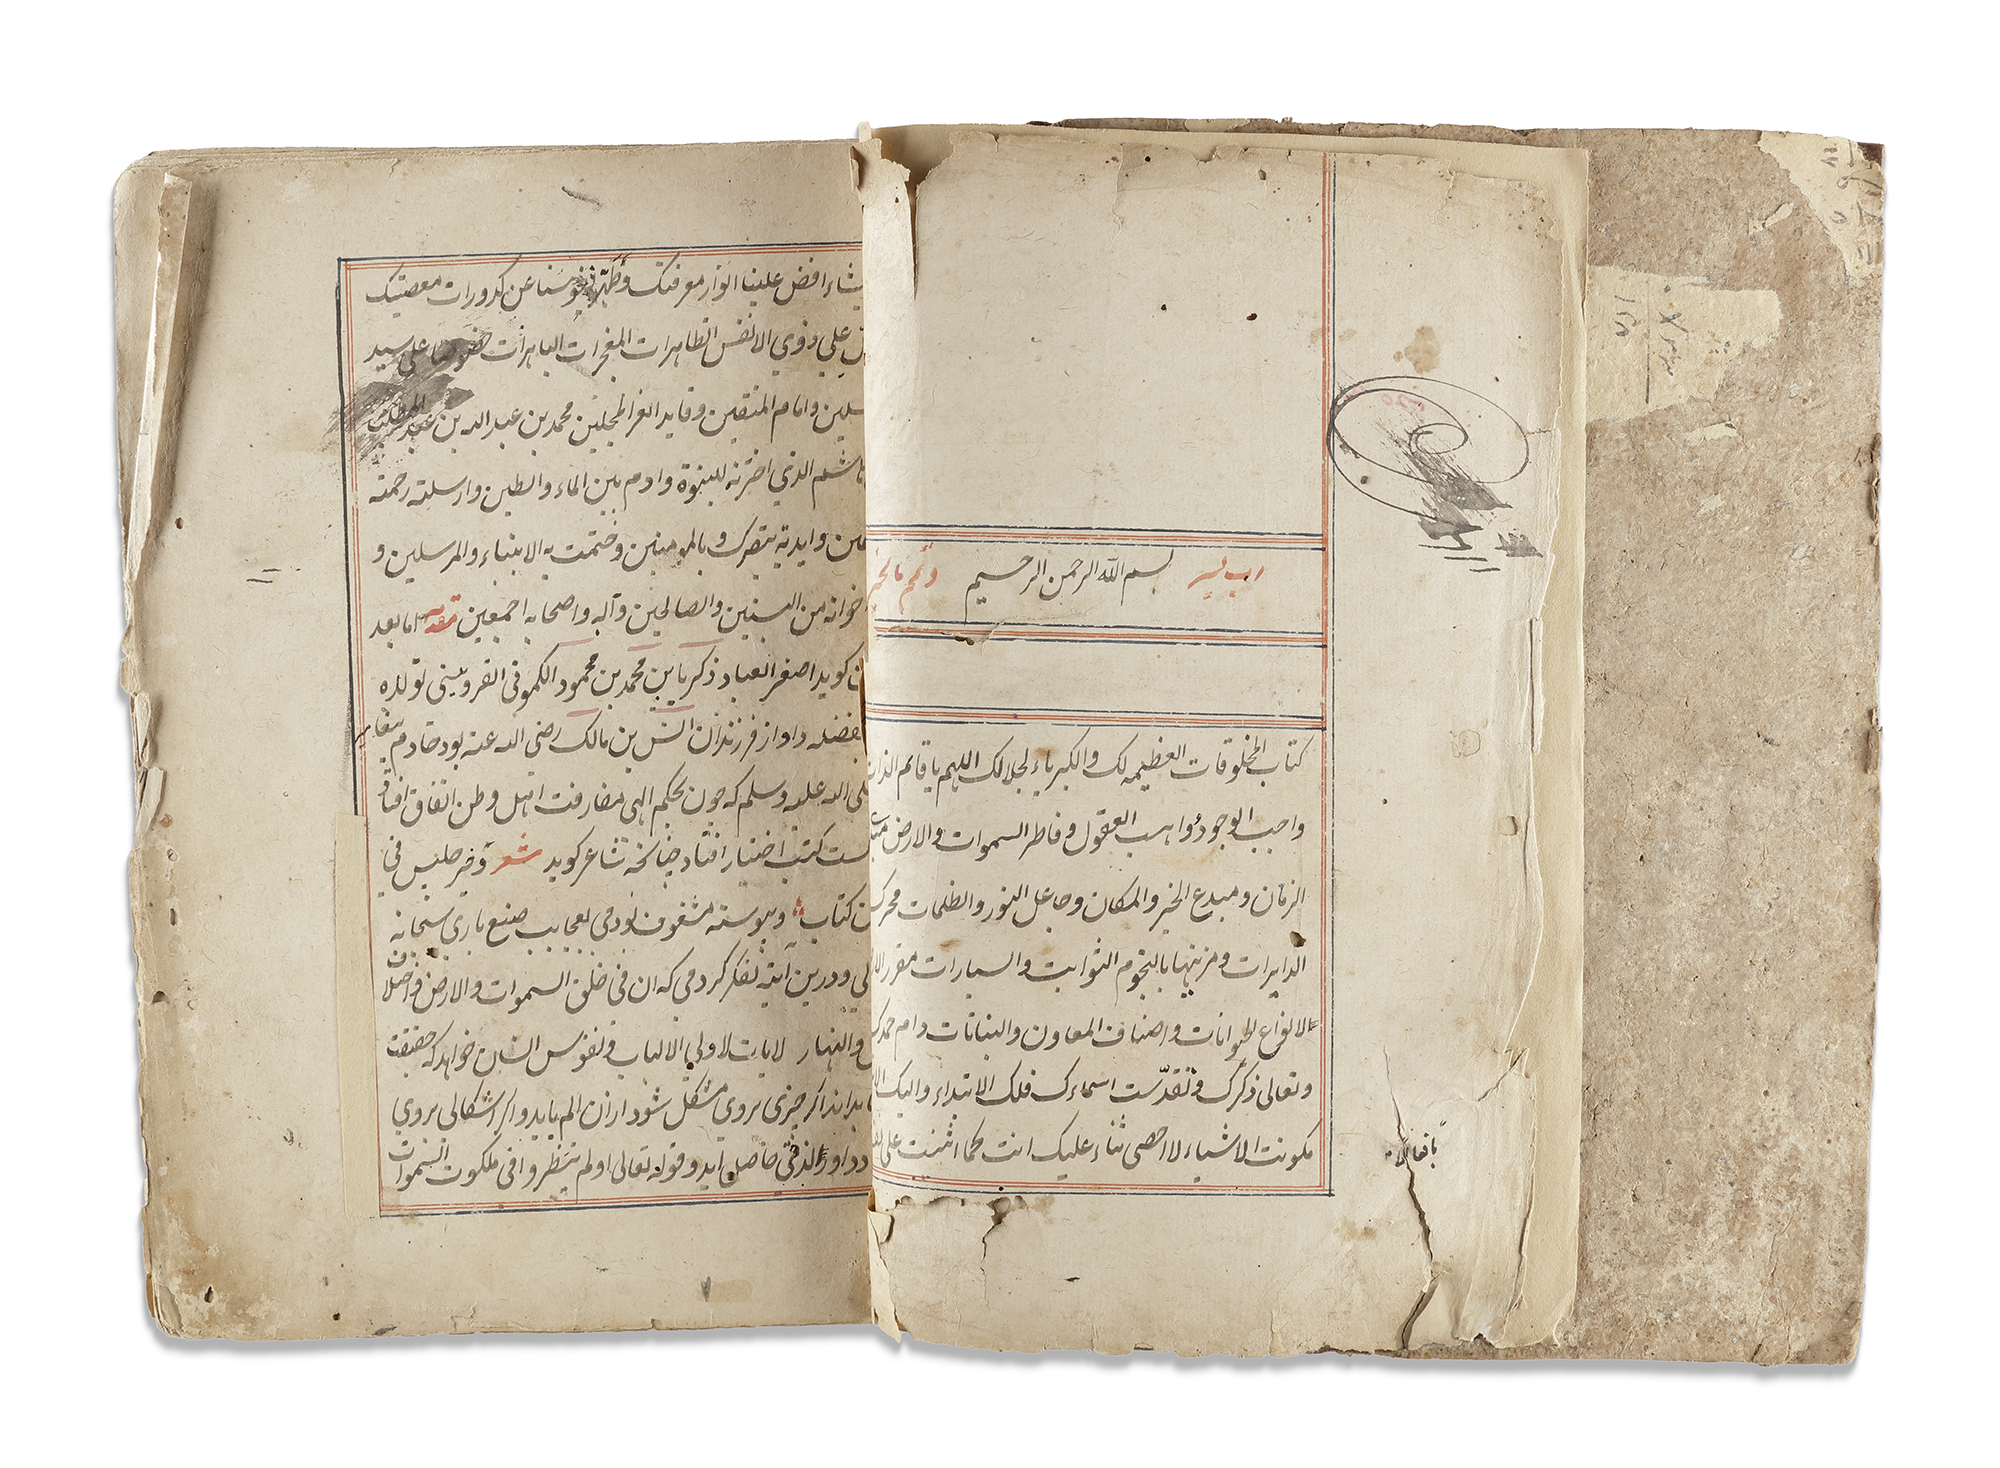 رب يسر بسم الله الرحمن الرحيم وتمم بالخير
كتاب المخلوقات العظيمه لك والكبرياء لجلالك اللهم يا قائم الذات
واجب الوجود واهب العقول وفاطر السموات والارض
الزمان ومبدع الخير والمكان وجاعل النور والظلمات محرك
الدايرات ومزينها بالنجوم الثوابت والسيارات مقرر
الانواع الحيوانات واصناف المعاون والنباتات دام حمدك
وتعالى ذكرك وتقدّست اسماءك فلك الابتداء واليك
مكونت الاشياء لا احصى ثناء عليك انت كما اثنيت على
يشاء افض علينا انوار معرفتك وطهّر نفوسنا عن كدورات معصيتك
على ذوي الانفس الطاهرات المعجزات الباهرات خصوصا على سيد
سلين وامام المتقين وقايد الغر المحجلين محمد بن عبد الله بن عبد المطلب
هاشم الذي اخترته للنبوة وادم بين الماء والطين وارسلته رحمته
لمين وايدته بنصرك وبالمومنين وختمت به الانبياء والمرسلين و
خوانه من النبيين والصالحين وآله واصحابه اجمعين مقدمه اما بعد
كويد اصغر العباد ذكريا بن محمد بن محمود الكموفى القرويينى تولده
بفضله داود از فرزندان انس بن مالك رضى الله عنه بود خادم پيغامبر
لى الله عليه وسلم كه چون بحكم الهى بمفارقت اهل وطن اتفاق افتاد
كتب اختيار افتاد چنانچه شاعر كويد شعر وخير جليس في
كتاب وپيوسته مشغوف بودمى بعجايب صنع باري سبحانه
لى ودرين آيته تفكر كردمى كه ان فى خلق السموات والارض واختلاف
والنهار لايات لاولي الالباب ونفوس انسان خواهد كه حقيقت
بداند اكر چيزى بروي مشكل شود ازان الم يابد واكر اشكالى بروي
حاصل آيد وقوله تعالى اولم ينظروا فى ملكوت السموات